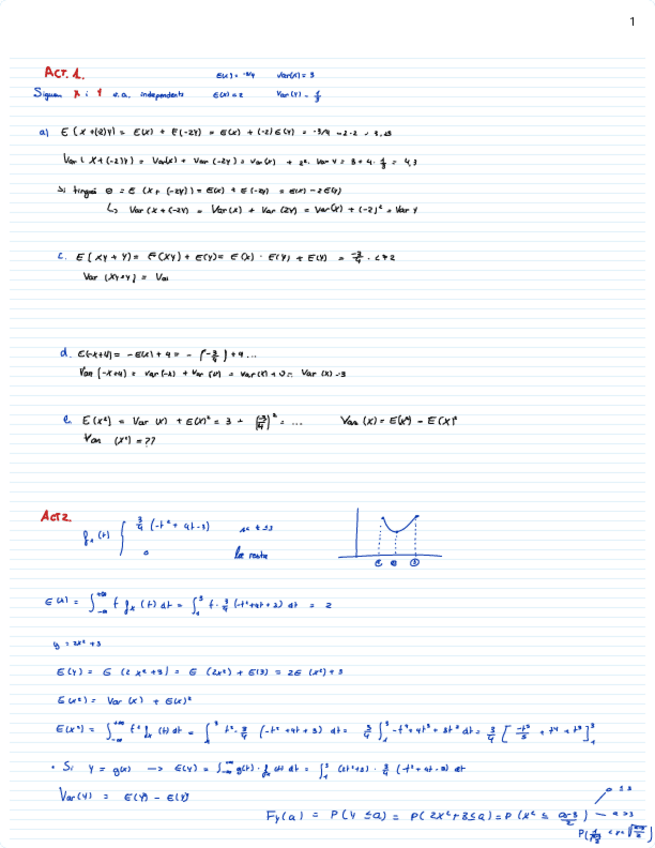 1
ACT. 1.
E(x) = -3/4 Var(x) = 3
Siguen X i Y v.a. independents E(Y) = 2 Var(Y) =
a) E(X+(-2)Y) = E(X) + E(-2Y) = E(X) + (-2)E(Y) = -3/4 - 2·2
Var(X+(-2)Y) = Var(X) + Var(-2Y) = Var(X) + 2²· Var Y = 3 + 4·
Si tingui = E(X+(-2Y)) = E(X) + E(-2Y) = E(X) - 2E(Y)
↳ Var(X+(-2Y) = Var(X) + Var(2Y) = Var(X) + (-2)² + Var Y
c. E(XY + Y) = E(XY) + E(Y) = E(X) · E(Y) + E(Y) = -3/4 ·
Var (XY+Y) = Var
d. E(-X+4) = -E(X) + 4 = - (-3/4) + 4 ...
Var(-X+4) = Var(-X) + Var(4) = Var(X) + 0 = Var(X) = 3
e. E(X²) = Var(X) + E(X)² = 3 + (-3/4)² = ... Var(X) = E(X²) - E(X)²
Var (X²) = ??
ACT 2.
fx(t) { 3/4 (-t² + 4t - 3)
0 la resta
E(X) = ∫ t fx(t) dt = ∫ t · 3/4 (-t²+4t+3) dt = 2
y = 2x² + 3
E(Y) = E(2x²+3) = E(2x²) + E(3) = 2E(x²) + 3
E(X²) = Var(X) + E(X)²
E(X²) = ∫ t² fx(t) dt = ∫ t² · 3/4 (-t² + 4t + 3) dt = 3/4 ∫ -t⁴ + 4t³ + 3t² dt = 3/4 [ -t⁵/5 + t⁴ + t³ ]
· Si Y = g(x) —> E(Y) = ∫ g(t) · fx(t) dt = ∫ (2t²+3) · 3/4 (-t²+4t-3) dt
Var(Y) = E(Y²) - E(Y)²
Fy(a) = P(Y ≤ a) = P(2X²+3 ≤ a) = P(X² ≤ a-3/2)